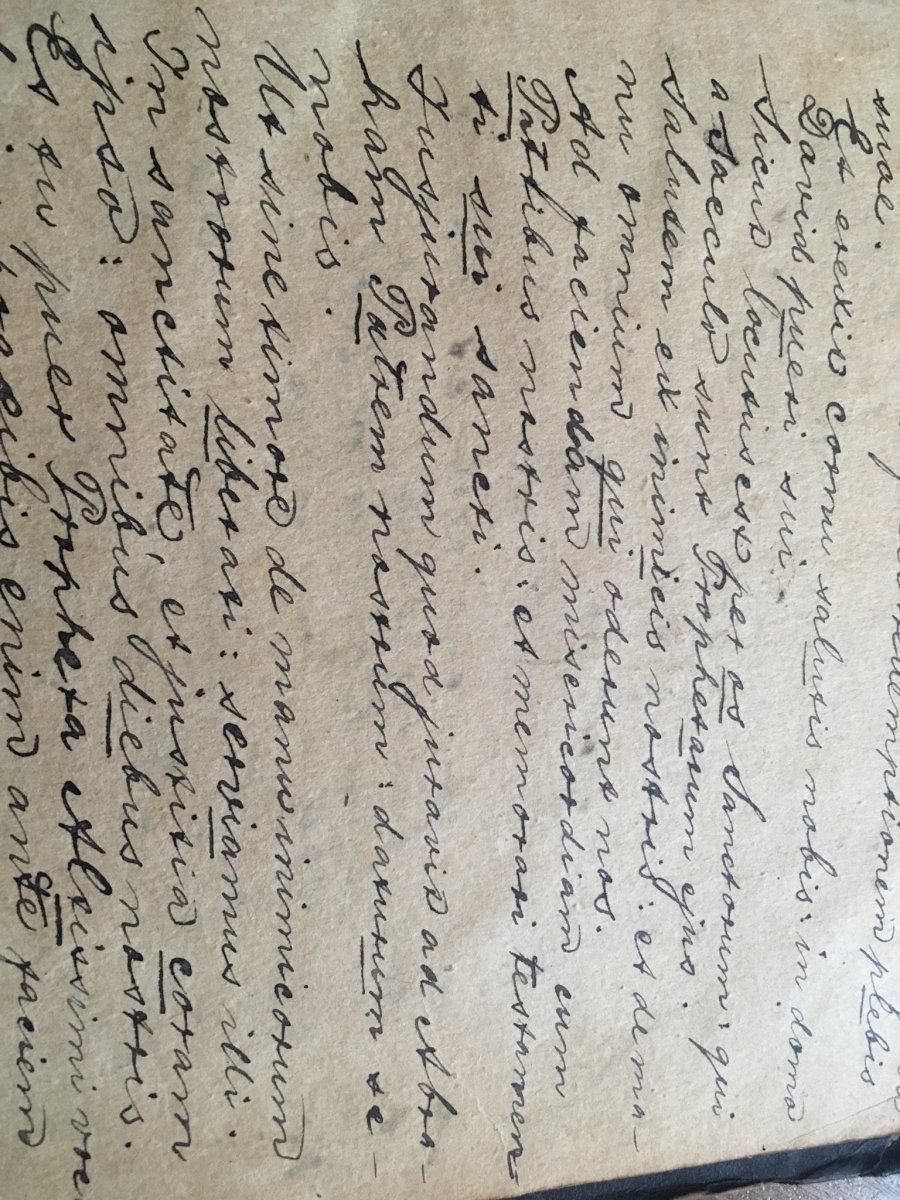 redemptionem plebis
suae.
Et erexit cornu salutis nobis: in domo
David pueri sui.
Sicut locutus est per os Sanctorum: qui
a saeculo sunt Prophetarum ejus:
Salutem ex inimicis nostris: et de ma-
nu omnium qui oderunt nos.
Ad faciendam misericordiam cum
Patribus nostris: et memorari testamen-
ti sui sancti.
Jusjurandum quod juravit ad Abra-
ham Patrem nostrum: daturum se-
nobis.
Ut sine timore de manu inimicorum
nostrorum liberati: serviamus illi.
In sanctitate et justitia coram
ipso: omnibus diebus nostris.
Et tu puer Propheta Altissimi voc
enim ante faciem